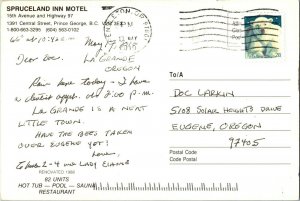 SPRUCELAND INN MOTEL
15th Avenue and Highway 97
1391 Central Street, Prince George, B.C.
1-800-663-3295 (604) 563-0102
May 17, 1988
LA GRANDE
OREGON
Dear Doc.
Rain here today – I have
a client appt. at 8:00 p.m.
LA GRANDE IS A NEAT
LITTLE TOWN.
HAVE THE BEES TAKEN
OVER EUGENE YET?
Love,
RENOVATED 1986
92 UNITS
HOT TUB — POOL — SAUNA
RESTAURANT
To/À
DOC LARKIN
5108 SOLAR HEIGHTS DRIVE
EUGENE, OREGON
97405
Postal Code
Code Postal